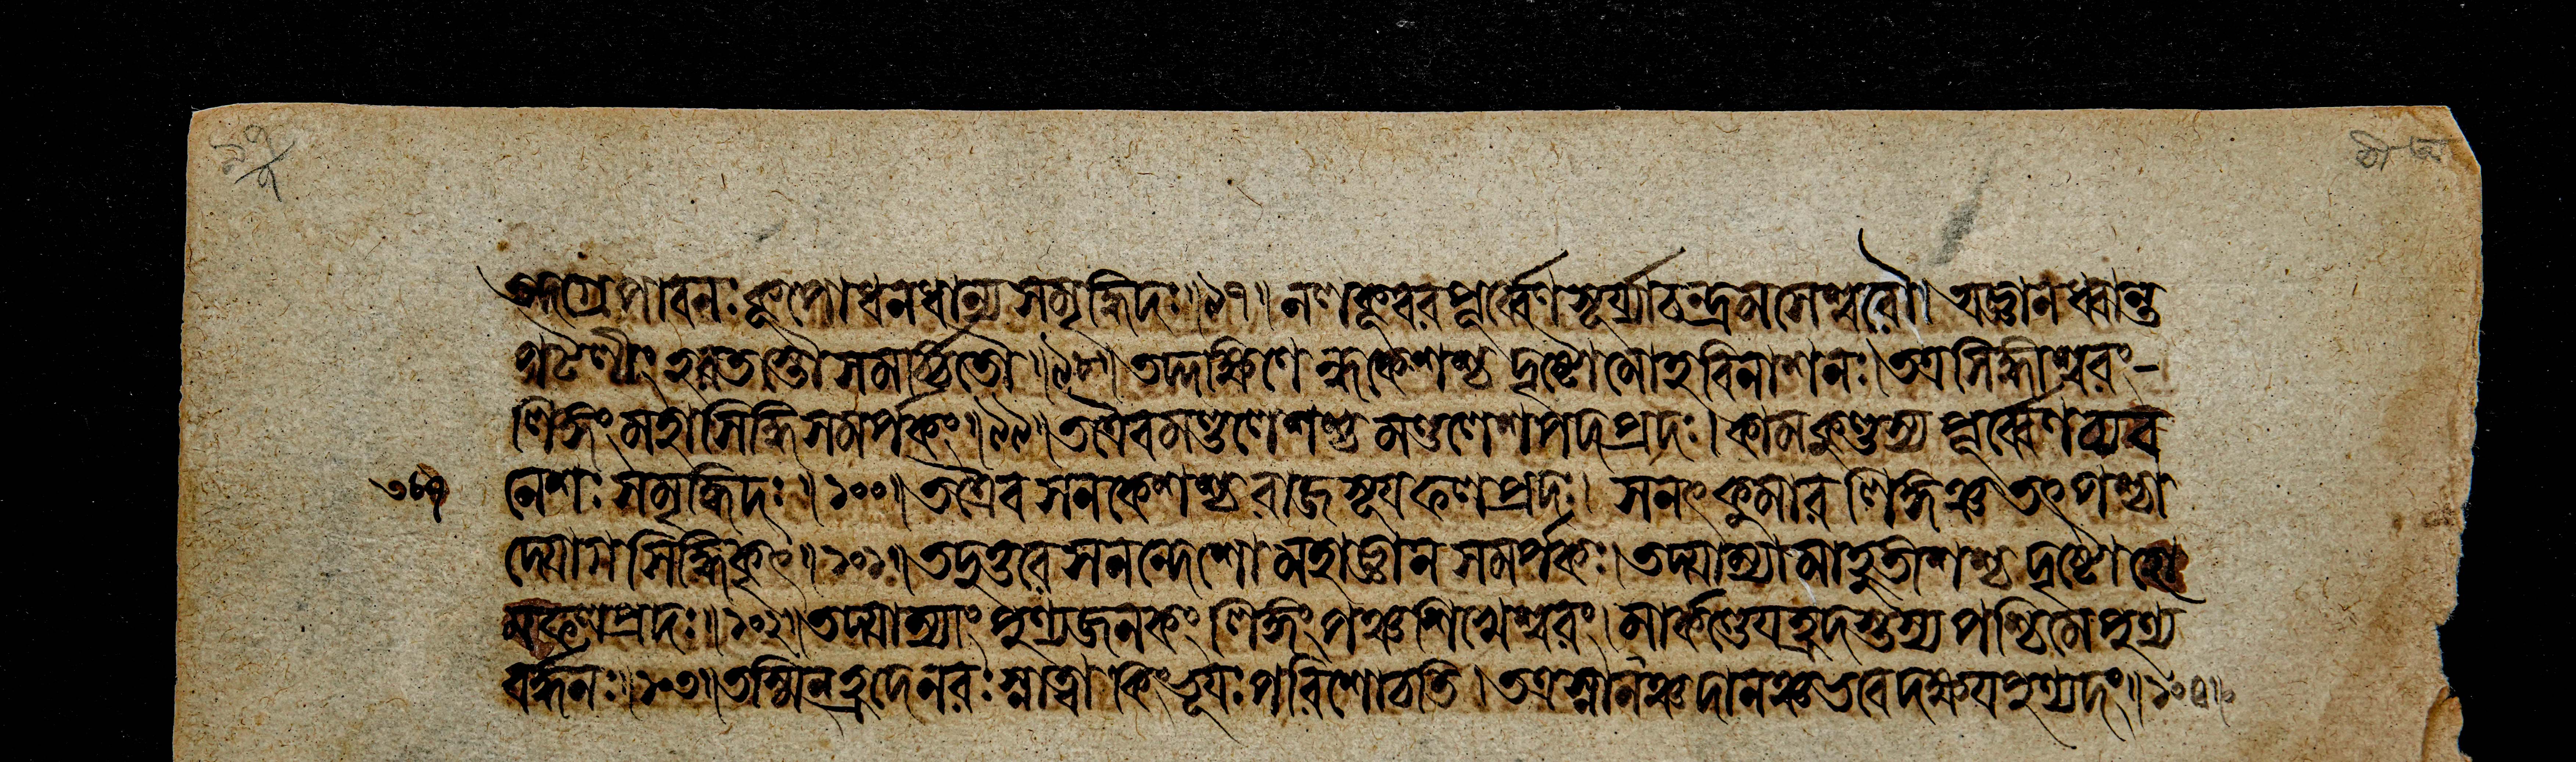 তদগ্রেপাবনঃ কূপোধনধান্যসমৃদ্ধিদঃ॥৯৭॥নলকূবরপূর্ব্বেণসূর্য্যাচন্দ্রমসেশ্বরৌ।অজ্ঞানধ্বান্ত
পটলীংহরতস্তৌসমর্চ্চিতৌ॥৯৮॥তদ্দক্ষিণেহ্মকেশশ্চদৃষ্টোমোহবিনাশনঃ।তত্রসিদ্ধীশ্বরং-
লিঙ্গংমহাসিদ্ধিসমর্পকং॥৯৯॥তত্রৈবমণ্ডলেশশ্চমণ্ডলেশপদপ্রদঃ।কামকুণ্ডস্যপূর্ব্বেণচ্যব
৩৮৭ নেশঃসমৃদ্ধিদঃ॥১০০॥তত্রৈবসনকেশশ্চরাজসূয়ফলপ্রদঃ।সনৎকুমারলিঙ্গঞ্চতৎপশ্চা
দ্যোগসিদ্ধিকৃৎ॥১০১॥তদুত্তরেসনন্দেশোমহাজ্ঞানসমর্পকঃ।তদ্যাম্যামাহুতীশশ্চদৃষ্টোহো
মফলপ্রদঃ॥১০২॥তদ্যাম্যাংপুণ্যজনকংলিঙ্গংপঞ্চশিখেশ্বরং।মার্কণ্ডেয়হ্রদস্তস্যপশ্চিমেপুণ্য
বর্দ্ধনঃ॥১০৩॥তস্মিনহ্রদেনরঃস্নাত্বাকিংভূয়ঃপরিশোচতি।তত্রস্নানঞ্চদানঞ্চভবেদক্ষয়পুণ্যদং॥১০৪॥